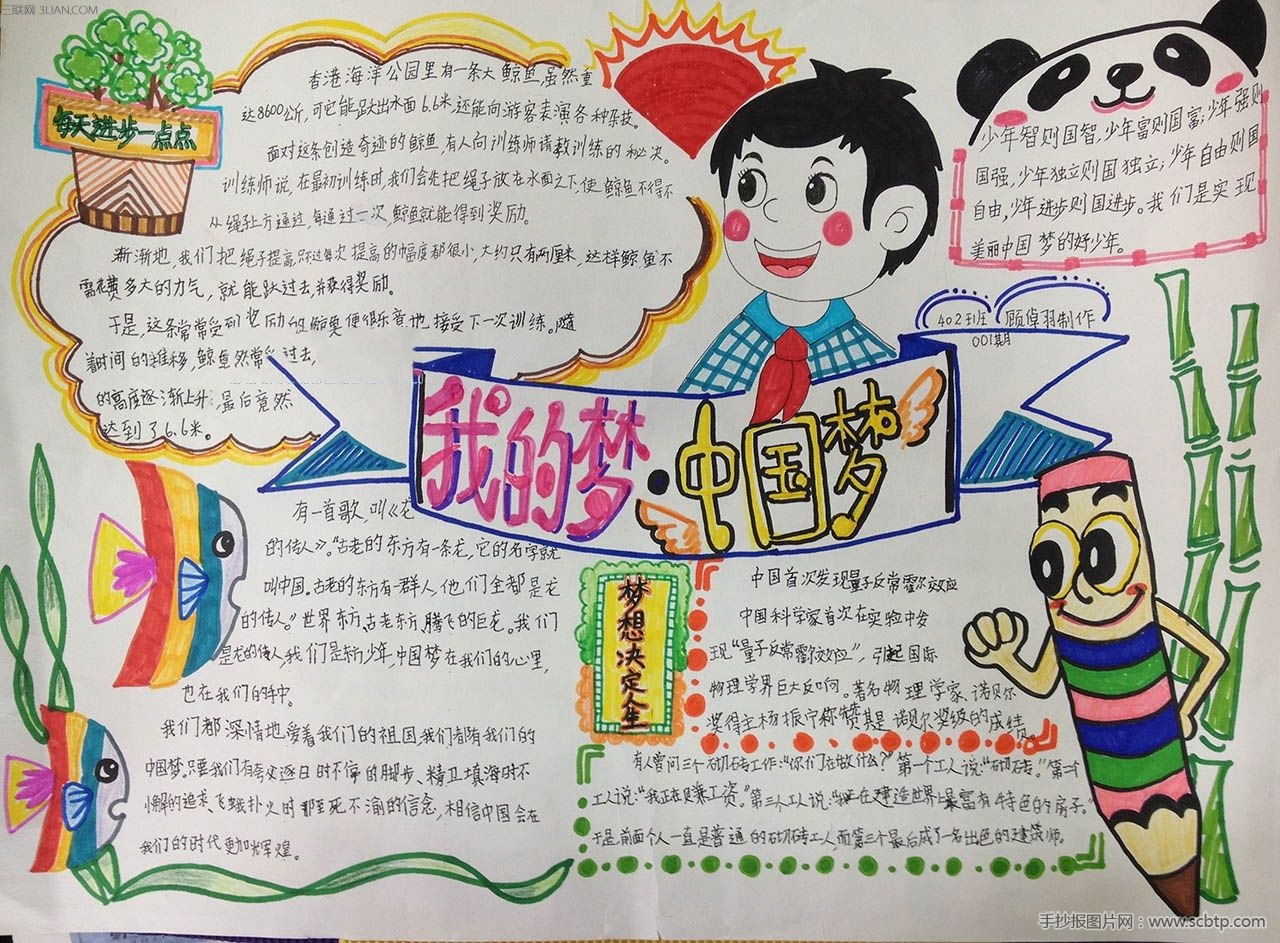 三联网 3LIAN.COM
每天进步一点点
香港海洋公园里有一条大鲸鱼,虽然重
达8600公斤,可它能跃出水面6.6米,还能向游客表演各种杂技。
面对这条创造奇迹的鲸鱼,有人向训练师请教训练的秘决。
训练师说,在最初训练时,我们会先把绳子放在水面之下,使鲸鱼不得不
从绳子上方通过,每通过一次,鲸鱼就能得到奖励。
渐渐地,我们把绳子提高,只不过每次提高的幅度都很小,大约只有两厘米,这样鲸鱼不
需花费多大的力气,就能跃过去,并获得奖励。
于是,这条常常受到奖励的鲸鱼便很乐意地接受下一次训练。随
着时间的推移,鲸鱼然常 过去,
的高度逐渐上升,最后竟然
达到了6.6米。
少年智则国智,少年富则国富;少年强则
国强,少年独立则国独立;少年自由则国
自由,少年进步则国进步。我们是实现
美丽中国梦的好少年。
402班 顾倬羽制作
001期
我的梦·中国梦
有一首歌,叫《龙
的传人》。“古老的东方有一条龙,它的名字就
叫中国。古老的东方有一群人,他们全都是龙
的传人。”世界东方,古老东方,腾飞的巨龙。我们
是龙的传人,我们是新少年,中国梦在我们的心里,
也在我们的手中。
我们都深情地爱着我们的祖国,我们都有我们的
中国梦。只要我们有夸父逐日时不停的脚步、精卫填海时不
懈的追求、飞蛾扑火时那至死不渝的信念,相信中国会在
我们的时代更加辉煌。
梦想决定人生
中国首次发现量子反常霍尔效应
中国科学家首次在实验中发
现“量子反常霍尔效应”,引起国际
物理学界巨大反响。著名物理学家、诺贝尔
奖得主杨振宁称赞其是诺贝尔奖级的成绩。
有人曾问三个砌砖工作:“你们在做什么?”第一个工人说:“砌砖。”第二个
工人说:“我正在赚工资。”第三人工人说:“我正在建造世界上最富有特色的房子。”
于是前面个人一直是普通的砌砖工人,而第三个最后成了一名出色的建筑师。
手抄报图片网:www.scbtp.com